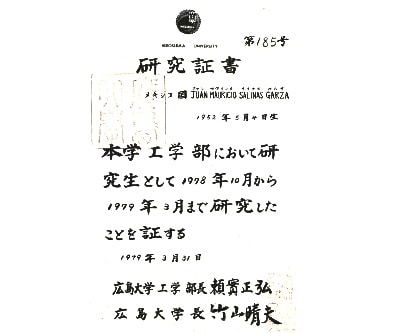 HIROSHIMA UNIVERSITY
第185号
研究証書
メキシコ国 JUAN MAURICIO SALINAS GARZA
1952年5月4日生
本学工学部において研
究生として1978年10月から
1979年3月まで研究した
ことを証する
1979年3月31日
広島大学工学部長 頼實正弘
広島大学長 竹山晴夫